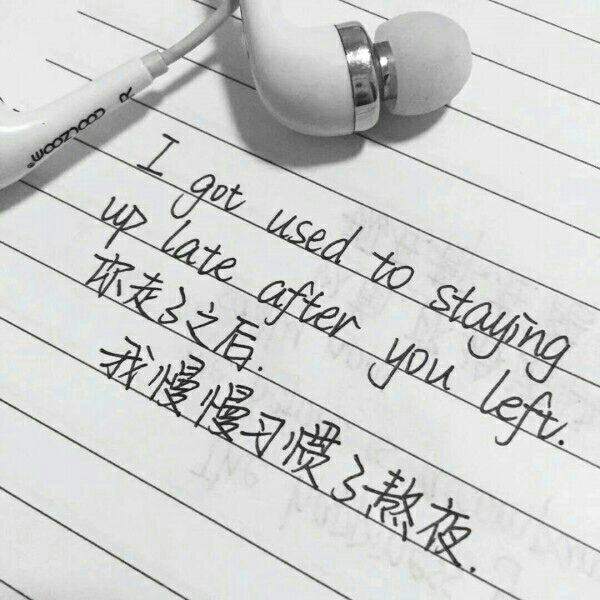 COOLZOOM
R
I got used to staying
up late after you left.
你走了之后.
我慢慢习惯了熬夜.